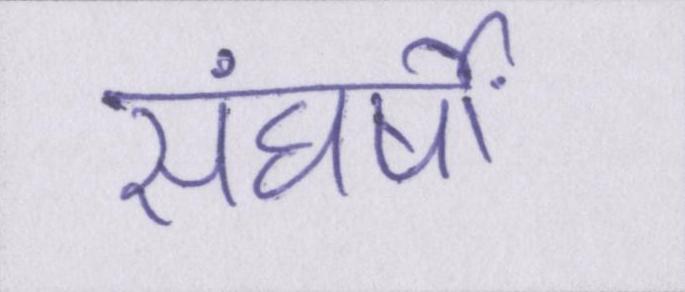 संघर्षों